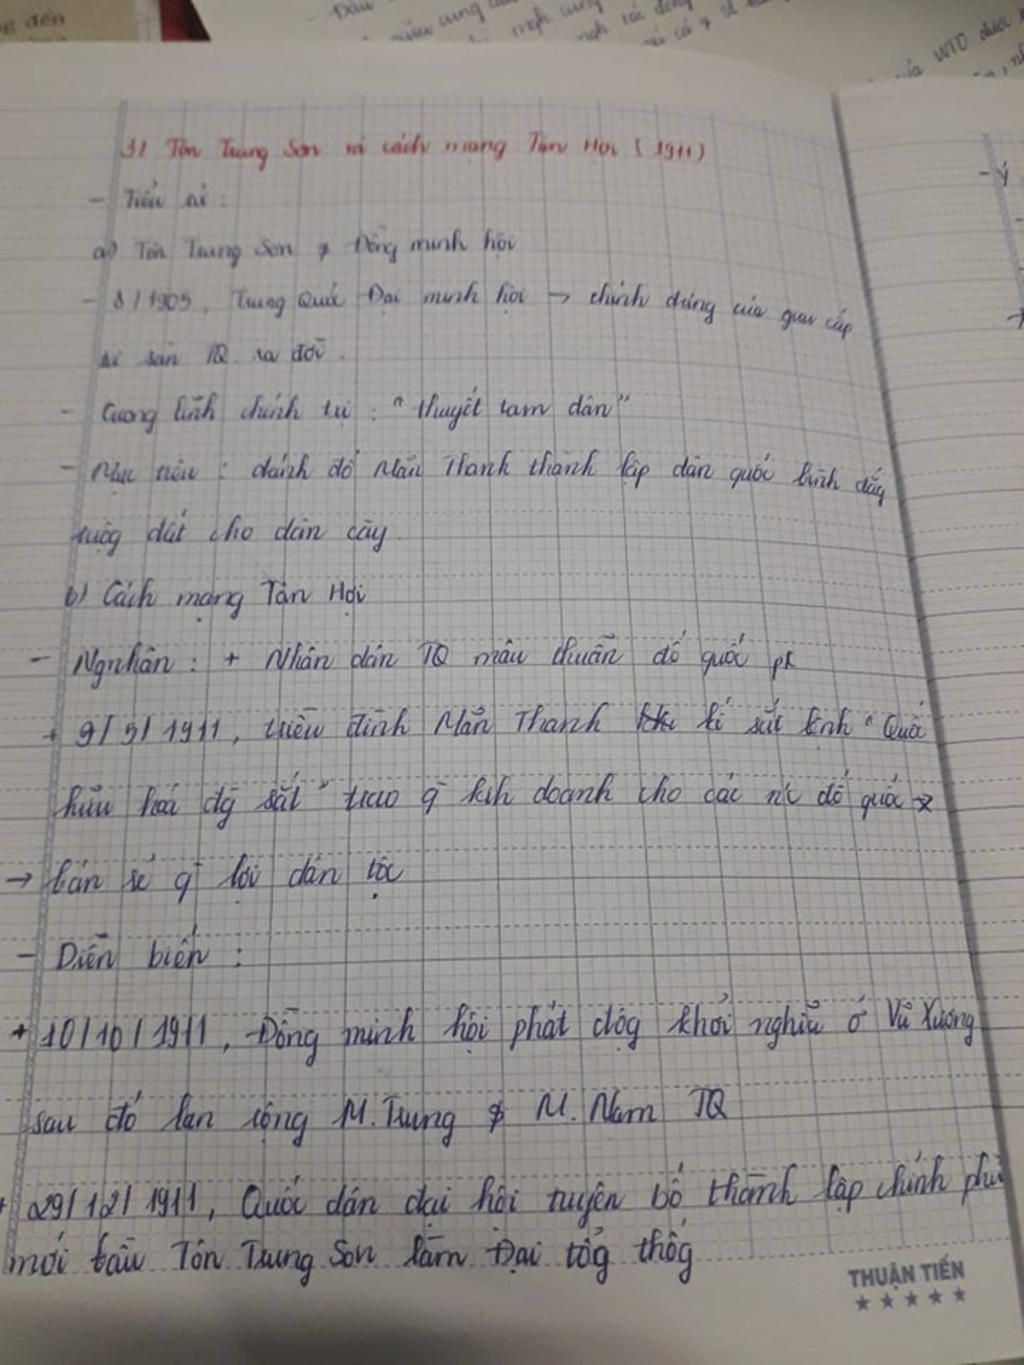 3/ Tôn Trung Sơn và cách mạng Tân Hợi (1911)
- Tiểu sử :
a) Tôn Trung Sơn & Đồng minh hội
- 8/1905, Trung Quốc Đại minh hội → chính đảng của giai cấp
tư sản TQ ra đời.
- Cương lĩnh chính trị : "thuyết tam dân"
- Mục tiêu : đánh đổ Mãn Thanh thành lập dân quốc bình đẳg
ruộg đất cho dân cày.
b) Cách mạng Tân Hợi
- Ng nhân : + Nhân dân TQ mâu thuẫn đế quốc pk
+ 9/5/1911, triều đình Mãn Thanh kí sắt lệnh "Quốc
hữu hoá đg sắt" trao q kih doanh cho các nc đế quốc
→ bán rẻ q lợi dân tộc
- Diễn biến :
+ 10/10/1911, Đồng minh hội phát độg khởi nghĩa ở Vũ Xương
sau đó lan rộng M. Trung & M. Nam TQ
+ 29/12/1911, Quốc dân đại hội tuyên bố thành lập chính phủ
mới bầu Tôn Trung Sơn làm Đại tổg thốg
THUẬN TIẾN
- Ý
của WTO được